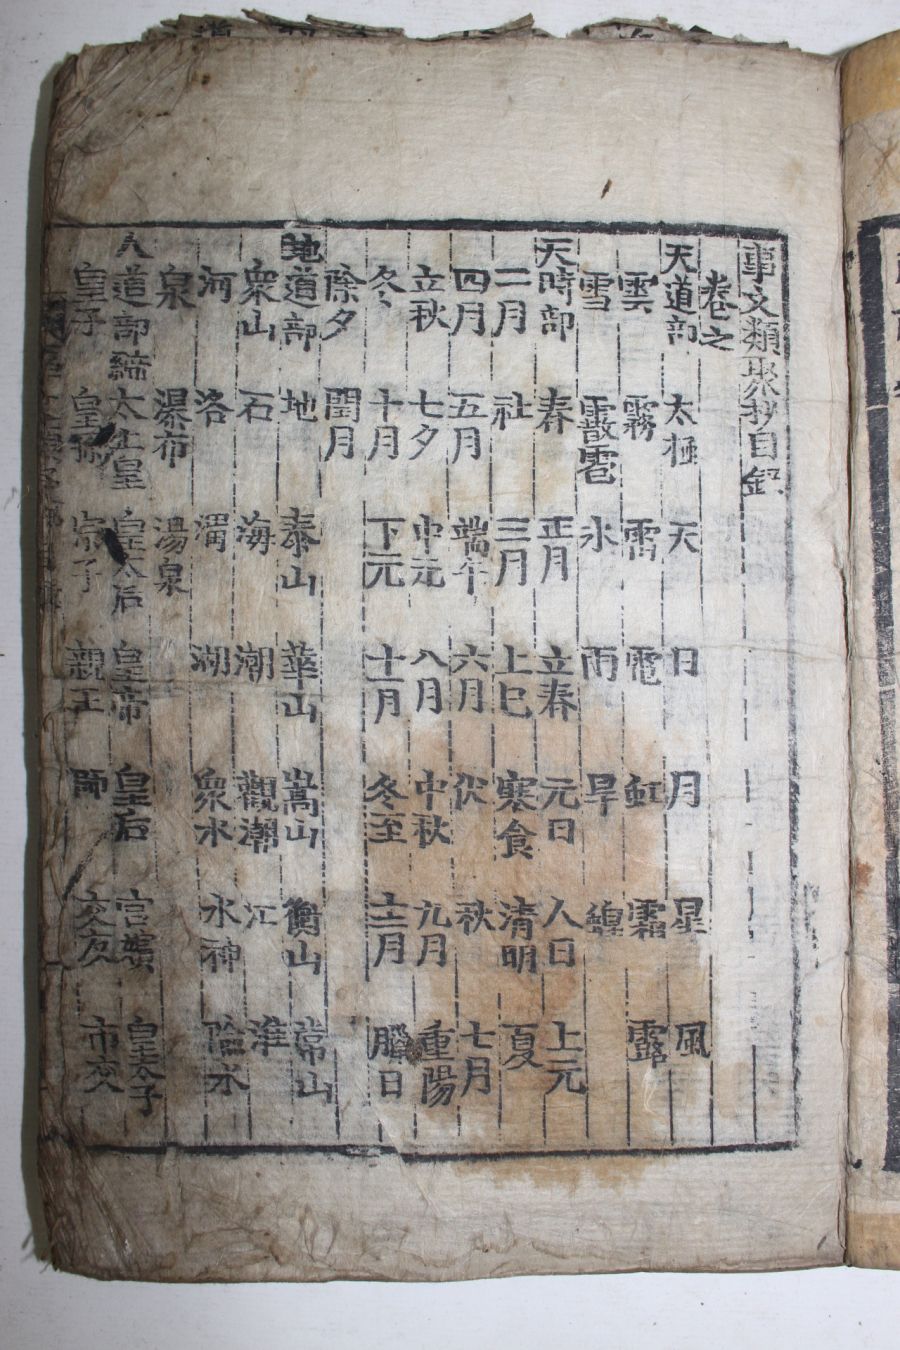 事文類聚抄目錄
卷之
天道部 太極 天 日 月 星 風
雲 霧 雷 電 虹 霜 露
雪 霰雹 氷 雨 旱 蝗
天時部 春 正月 立春 元日 人日 上元
二月 社 三月 上巳 寒食 清明 夏
四月 五月 端午 六月 伏 秋 七月
立秋 七夕 中元 八月 中秋 九月 重陽
冬 十月 下元 十一月 冬至 十二月 臘日
除夕 閏月
地道部 地 泰山 華山 嵩山 衡山 常山
衆山 石 海 潮 觀潮 江 淮
河 洛 渭 湖 衆水 水神
泉 瀑布 湯泉
人道部 太上皇 皇太后 皇帝 皇后 宮嬪 皇太子
皇子 皇孫 宗子 親王 師 交友 市交